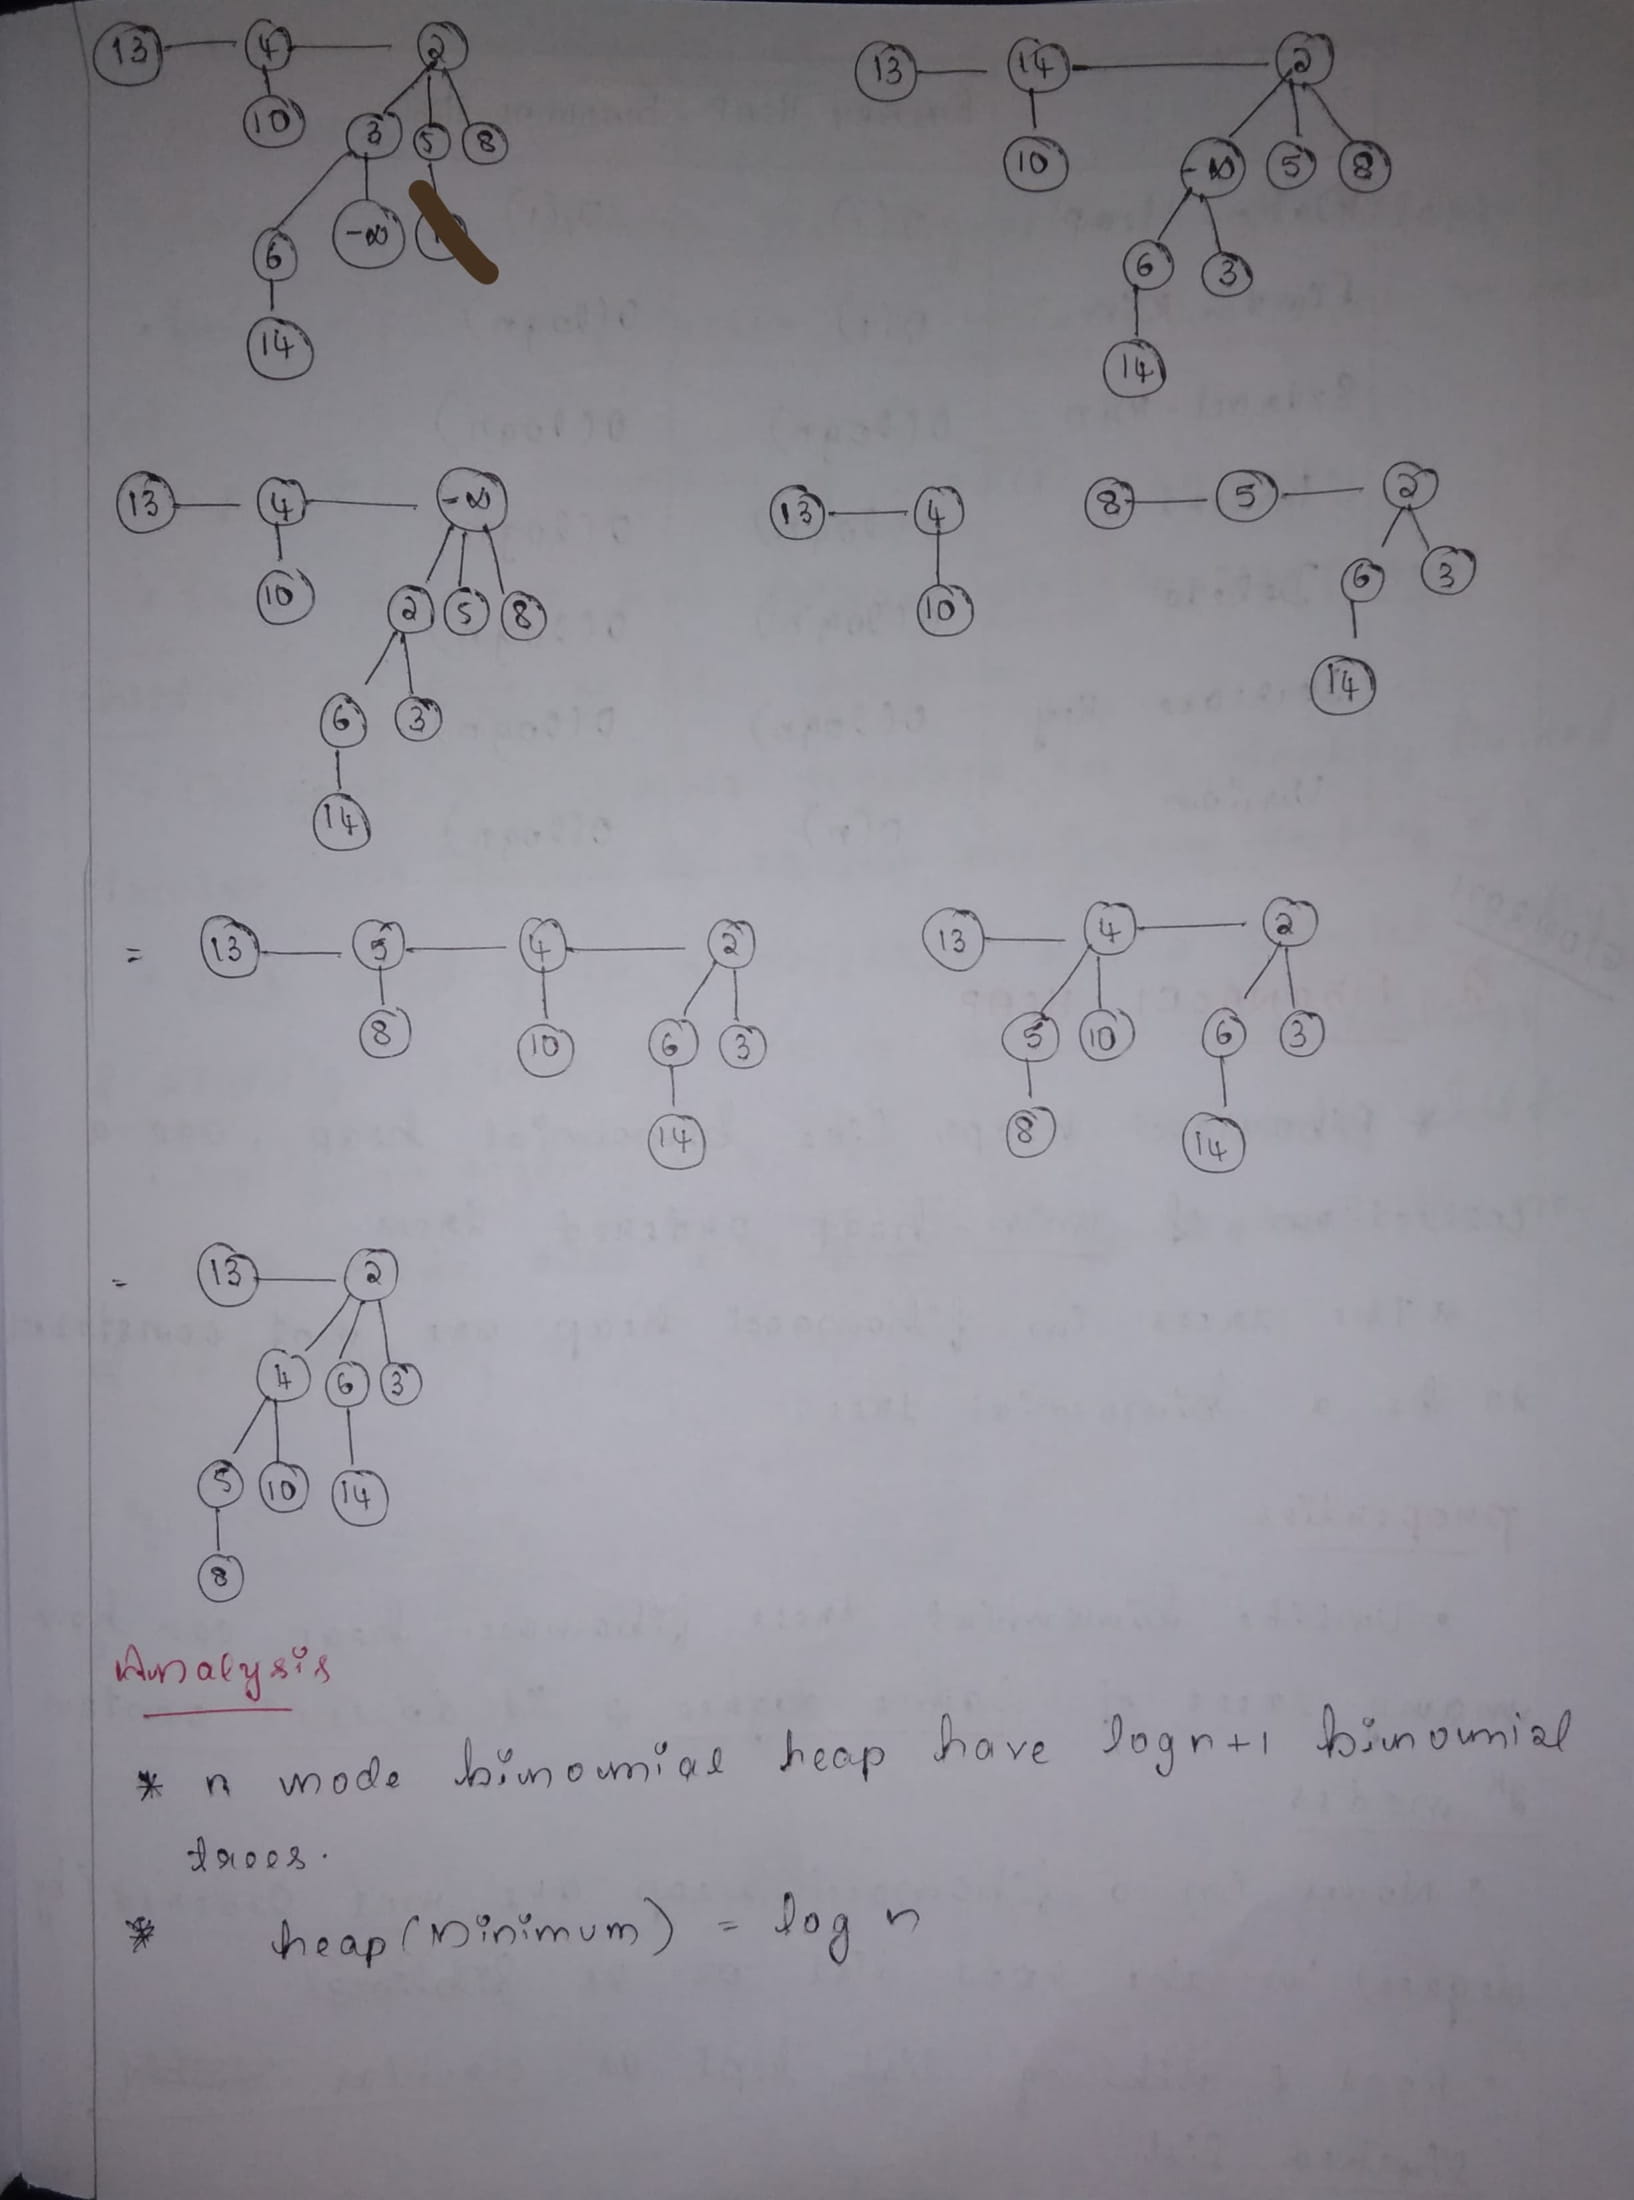 13 4 2
10 3 5 8
6 -∞
14
13 14 2
10 -∞ 5 8
6 3
14
13 4 -∞
10 2 5 8
6 3
14
13 4 8 5 2
10 6 3
14
= 13 5 4 2
8 10 6 3
14
13 4 2
5 10 6 3
8 14
= 13 2
4 6 3
5 10 14
8
Analysis
* n node binoumial heap have log n+1 binoumial
trees.
* heap (Minimum) = log n